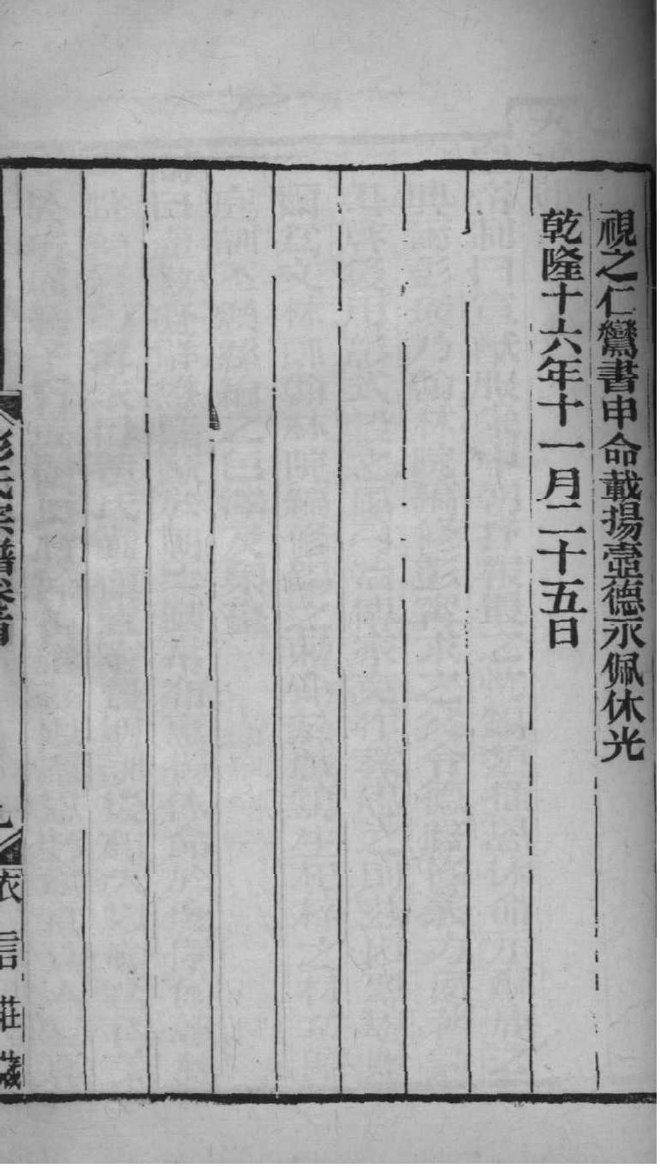 視之仁鸞書申命載揚壼德永佩休光
乾隆十六年十一月二十五日
彭氏宗譜卷首
九
敦信莊藏